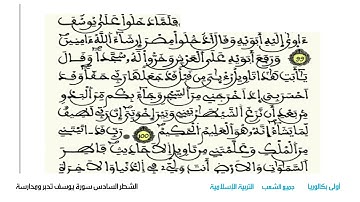 فلما دخلوا على يوسف
ءاوى إليه أبويه وقال ادخلوا مصر إن شاء الله ءامنين
99 ورفع أبويه على العرش وخروا له سجدا وقال
يأبت هذا تاويل رءيي من قبل قد جعلها ربي حقا وقد
أحسن بي إذ أخرجني من السجن وجاء بكم من البدو
من بعد أن نزغ الشيطن بيني وبين إخوتي إن ربي لطيف
لما يشاء انه هو العليم الحكيم 100 رب قد اتيتني
من الملك وعلمتني من تاويل الاحاديث فاطر
السموات والارض أنت وليي في الدنيا والاخرة
الشطر السادس سورة يوسف تدبر ومدارسة التربية الإسلامية جميع الشعب أولى بكالوريا